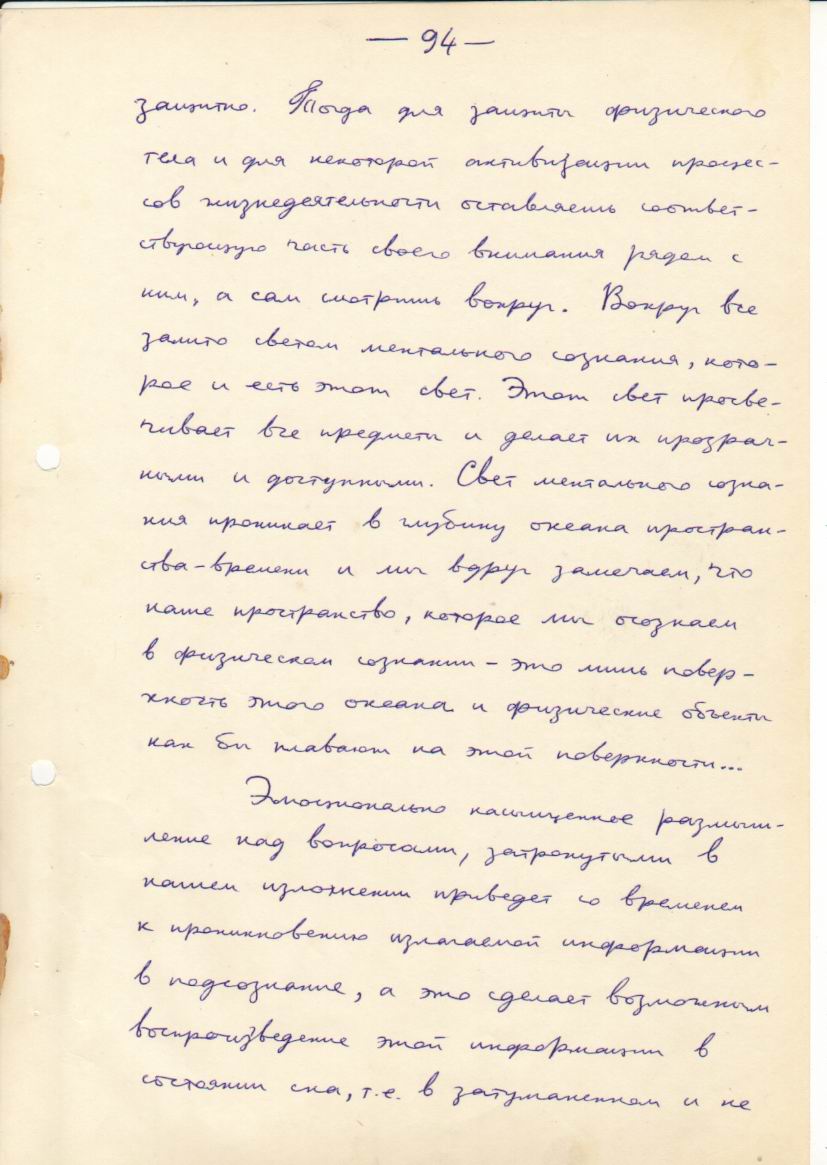 — 94 —
защитно. Тогда для защиты физического
тела и для некоторой активизации процес-
сов жизнедеятельности оставляешь соответ-
ствующую часть своего внимания рядом с
ним, а сам смотришь вокруг. Вокруг все
залито светом ментального сознания, кото-
рое и есть этот свет. Этот свет просве-
чивает все предметы и делает их прозрач-
ными и доступными. Свет ментального созна-
ния проникает в глубину океана простран-
ства-времени и мы вдруг замечаем, что
наше пространство, которое мы осознаем
в физическом сознании – это лишь повер-
хность этого океана и физические объекты
как бы плавают на этой поверхности...
Эмоционально насыщенное размыш-
ление над вопросами, затронутыми в
нашем изложении приведет со временем
к проникновению излагаемой информации
в подсознание, а это сделает возможным
воспроизведение этой информации в
состоянии сна, т.е. в затуманенном и не